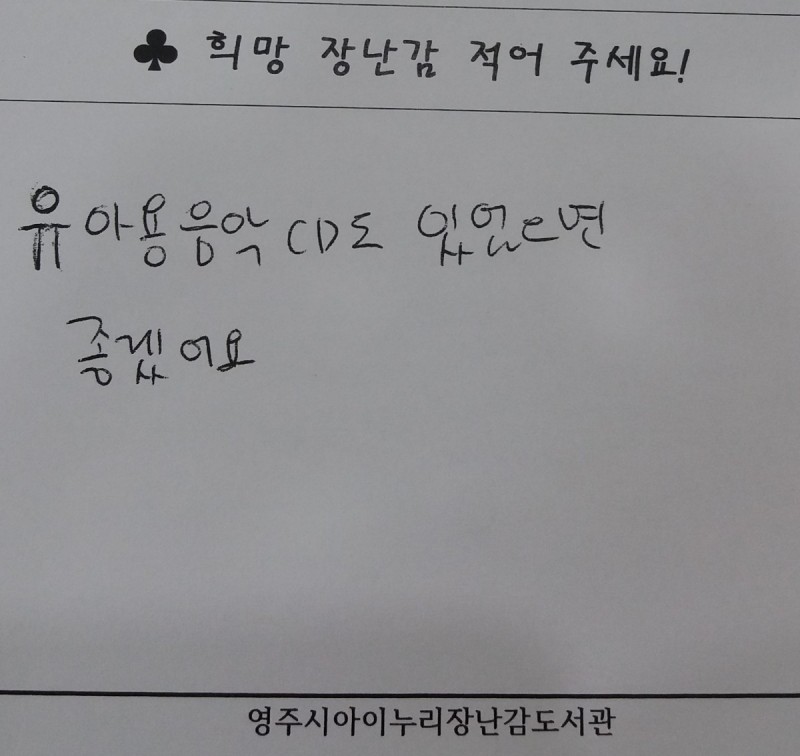 ♣ 희망 장난감 적어 주세요!
유아용음악 CD도 있었으면
좋겠어요
영주시아이누리장난감도서관